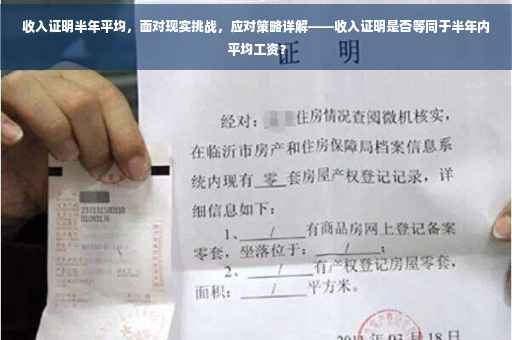 收入证明半年平均，面对现实挑战，应对策略详解——收入证明是否等同于半年内
平均工资？
证 明
经对：
住房情况查阅微机核实，
在临沂市房产和住房保障局档案信息系
统内现有 零 套房屋产权登记记录，详
细信息如下：
1、 / 有商品房网上登记备案
零套，坐落位于： / ；
2、 / 有产权登记房屋零套，
面积： / 平方米。